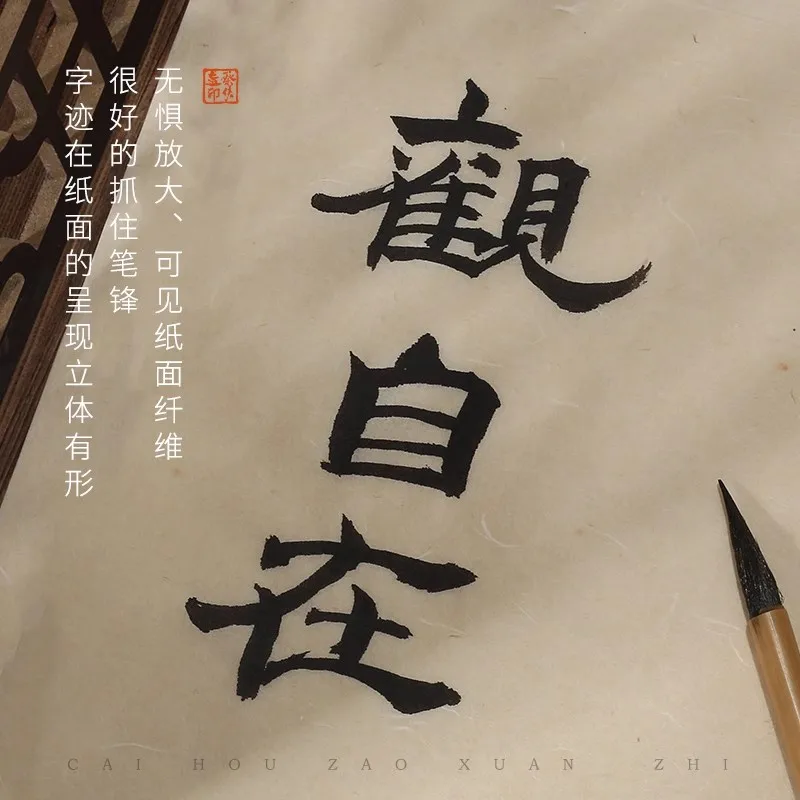 无惧放大、可见纸面纤维
很好的抓住笔锋
字迹在纸面的呈现立体有形
觀自在
CAI HOU ZAO XUAN ZHI